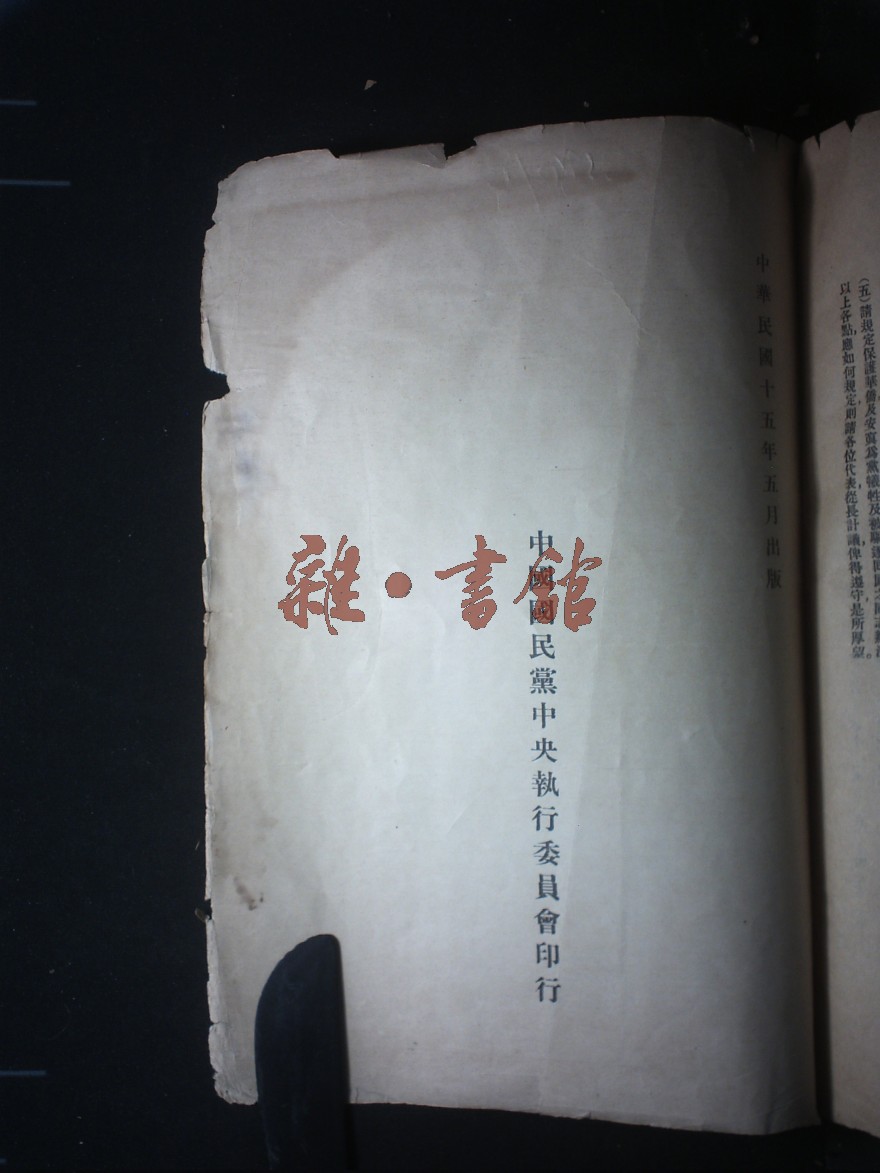 (五)請規定保護華僑及安寘爲黨犧牲及被驅逐回國之同志辦法。
以上各點應如何規定則請各位代表從長計議俾得遵守是所厚望
中華民國十五年五月出版
中國國民黨中央執行委員會印行
雜•書館